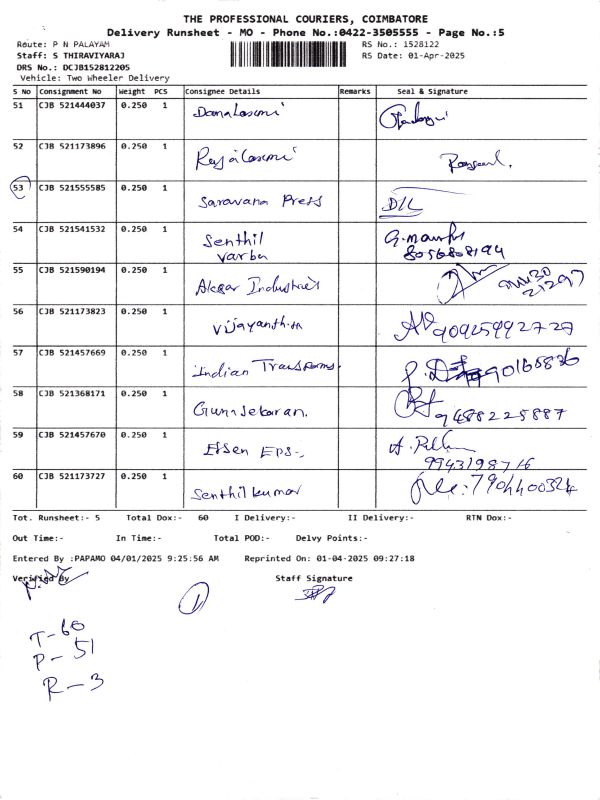 THE PROFESSIONAL COURIERS, COIMBATORE
Delivery Runsheet - MO - Phone No.:0422-3505555 - Page No.:5
Route: P N PALAYAM RS No.: 1528122
Staff: S THIRAVIYARAJ RS Date: 01-Apr-2025
DRS No.: DCJB152812205
Vehicle: Two Wheeler Delivery
S No Consignment No Weight PCS Consignee Details Remarks Seal & Signature
51 CJB 521444037 0.250 1
52 CJB 521173896 0.250 1 Rajalaxmi
53 CJB 521555585 0.250 1 Saravana Press D1L
54 CJB 521541532 0.250 1 Senthil
8056808194
55 CJB 521590194 0.250 1 Industries
56 CJB 521173823 0.250 1 90925992727
57 CJB 521457669 0.250 1 Indian
58 CJB 521368171 0.250 1 Gunasekaran. 9488225887
59 CJB 521457670 0.250 1 EPS
9943198716
60 CJB 521173727 0.250 1 Senthil kumar
Tot. Runsheet:- 5 Total Dox:- 60 I Delivery:- II Delivery:- RTN Dox:-
Out Time:- In Time:- Total POD:- Delvy Points:-
Entered By :PAPAMO 04/01/2025 9:25:56 AM Reprinted On: 01-04-2025 09:27:18
Verified By Staff Signature
1
T-60
P-51
R-3